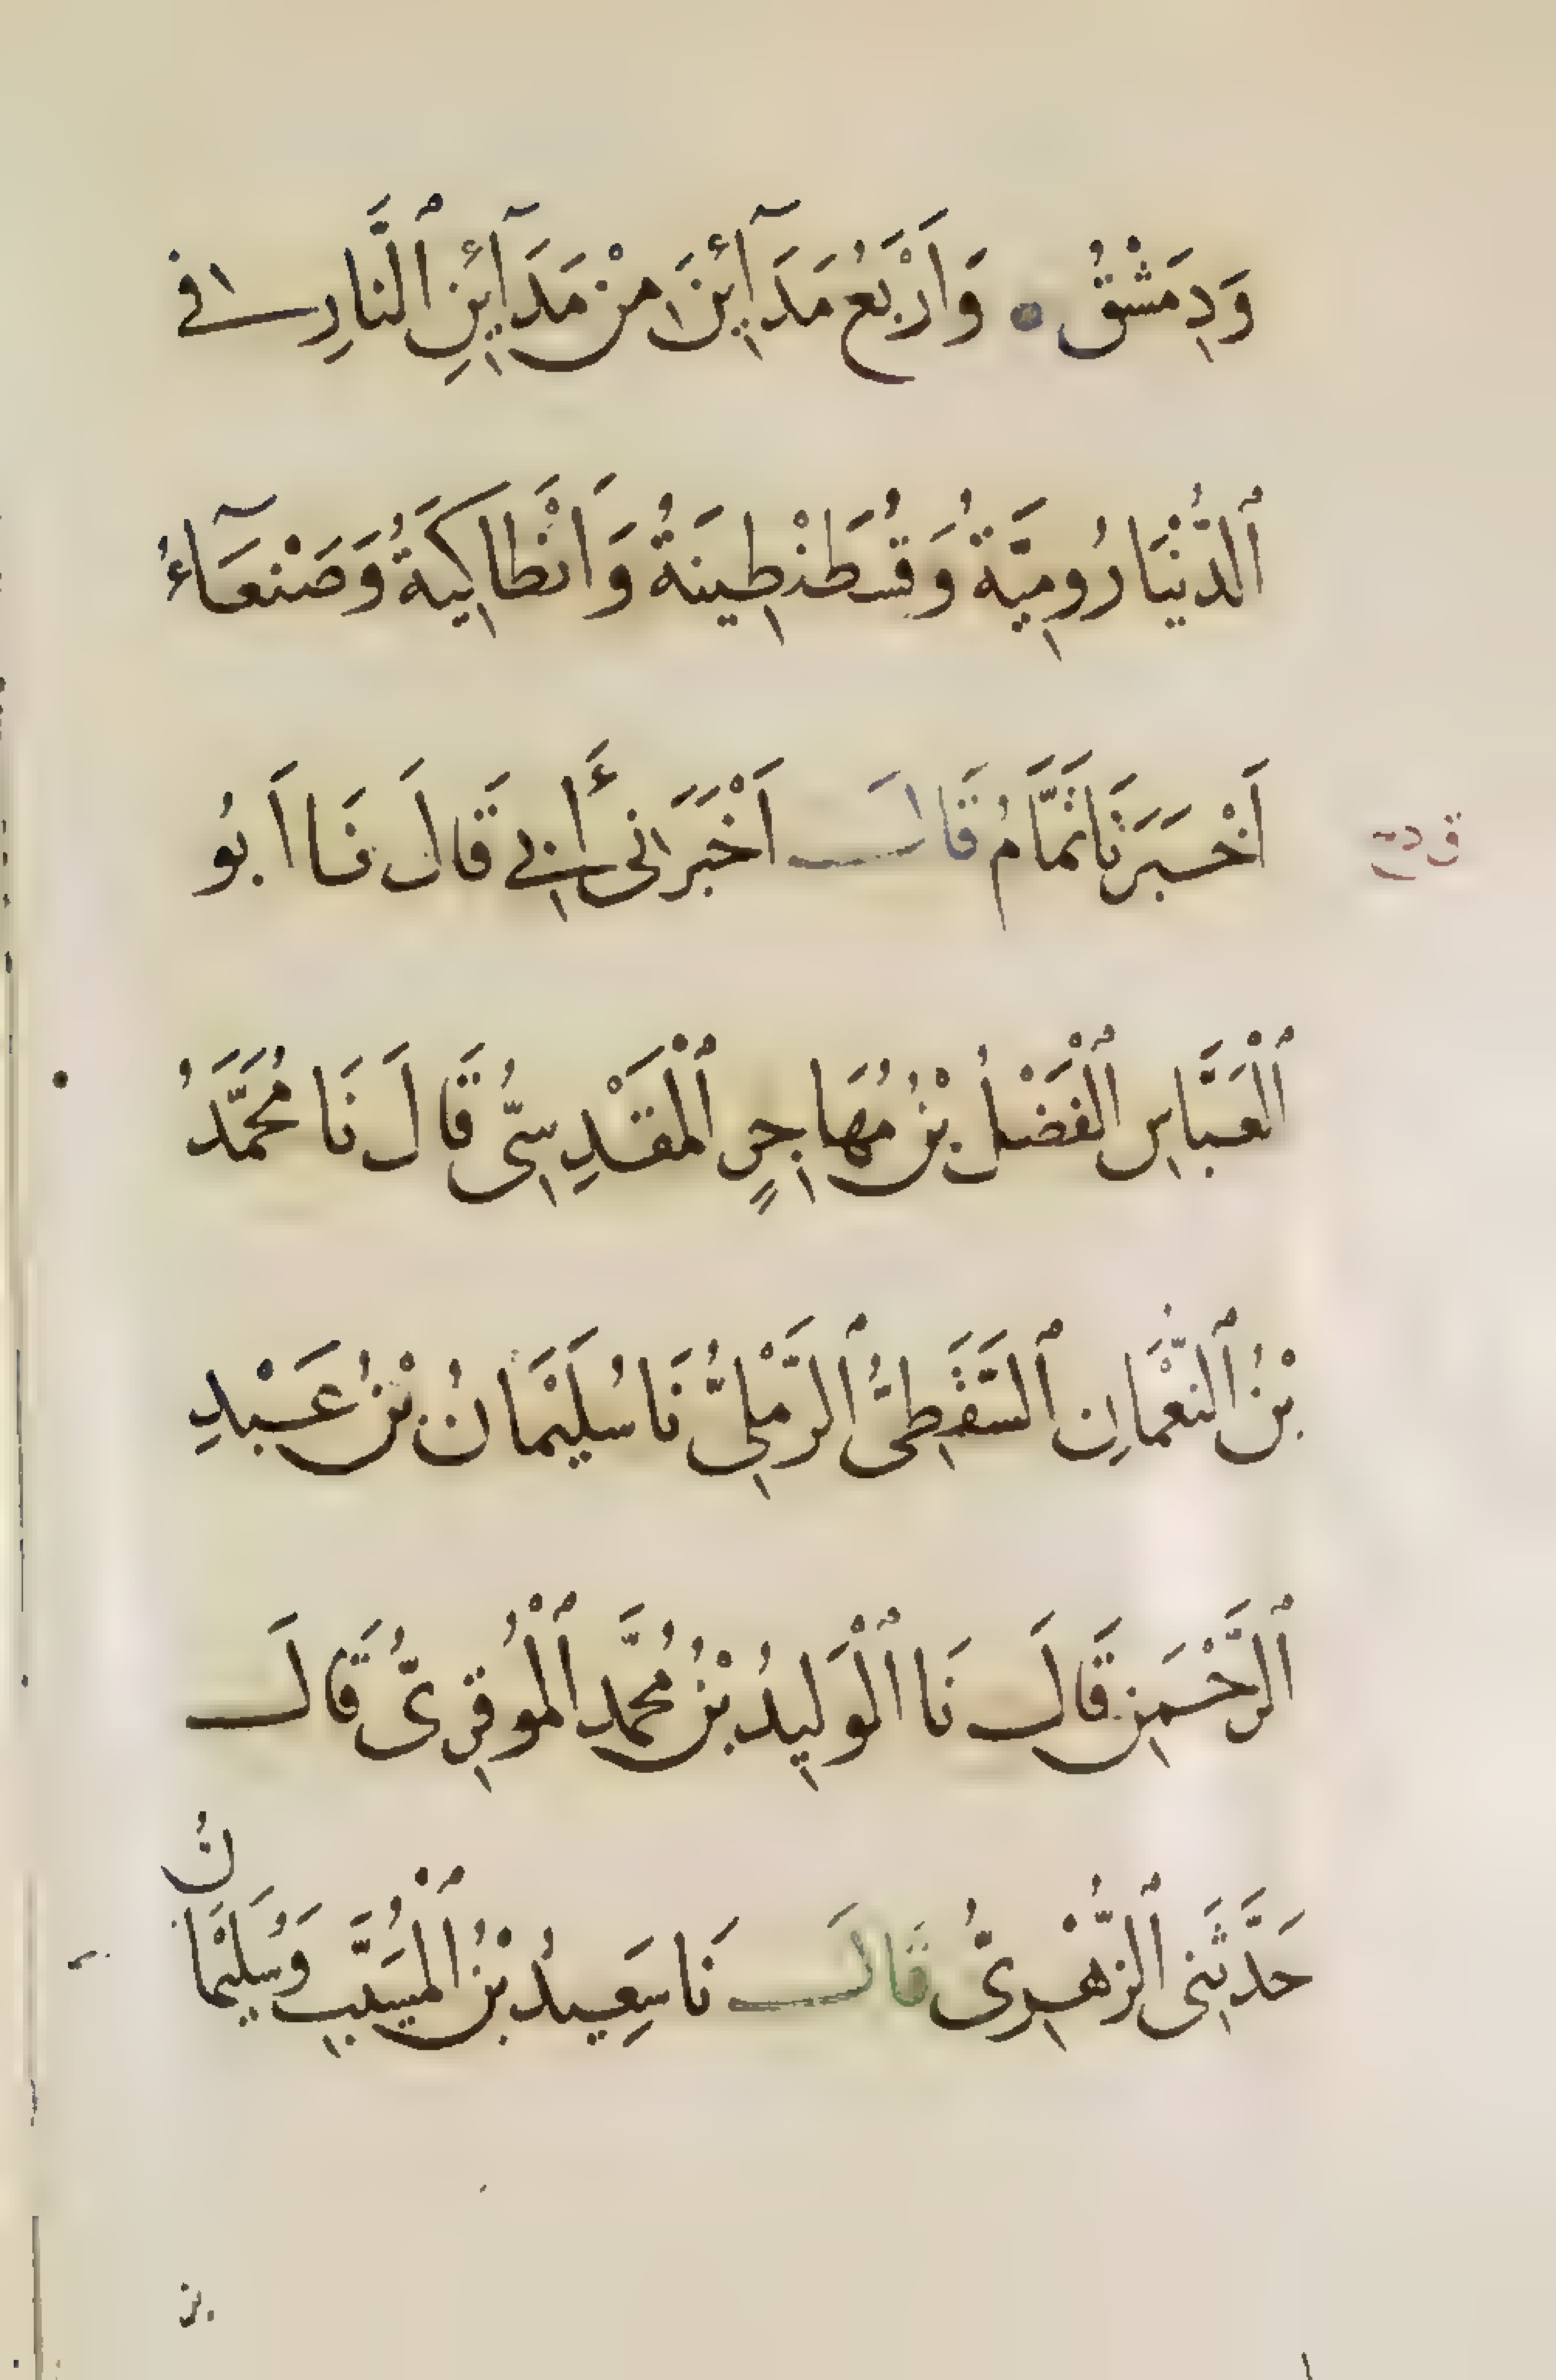 وَدِمَشْقُ • وَاَرْبَعُ مَدَآئِنَ مِنْ مَدَآئِنِ ٱلنَّارِ فِي
ٱلدُّنْيَا رُومِيَّةُ وَقُسْطَنْطِينَةُ وَاَنْطَاكِيَةُ وَصَنْعَآءُ
اَخْبَرَنَا تَمَّامُ قَالَ اَخْبَرَنِى أَبِي قَالَ نَا اَبُو
ٱلْعَبَّاسِ ٱلْفَضْلُ بْنُ مُهَاجِرٍ ٱلْمَقْدِسِىُّ قَالَ نَا مُحَمَّدُ
بْنُ ٱلنُّعْمَانِ ٱلسَّقَطِىُّ ٱلرَّمْلِىُّ نَا سُلَيْمَانُ بْنُ عَبْدِ
ٱلرَّحْمَنِ قَالَ نَا ٱلْوَلِيدُ بْنُ مُحَمَّدٍ ٱلْمُوقَرِىُّ قَالَ
حَدَّثَنِى ٱلزُّهْرِىُّ قَالَ نَا سَعِيدُ بْنُ ٱلْمُسَيَّبِ وَسُلَيْمَانُ
بن